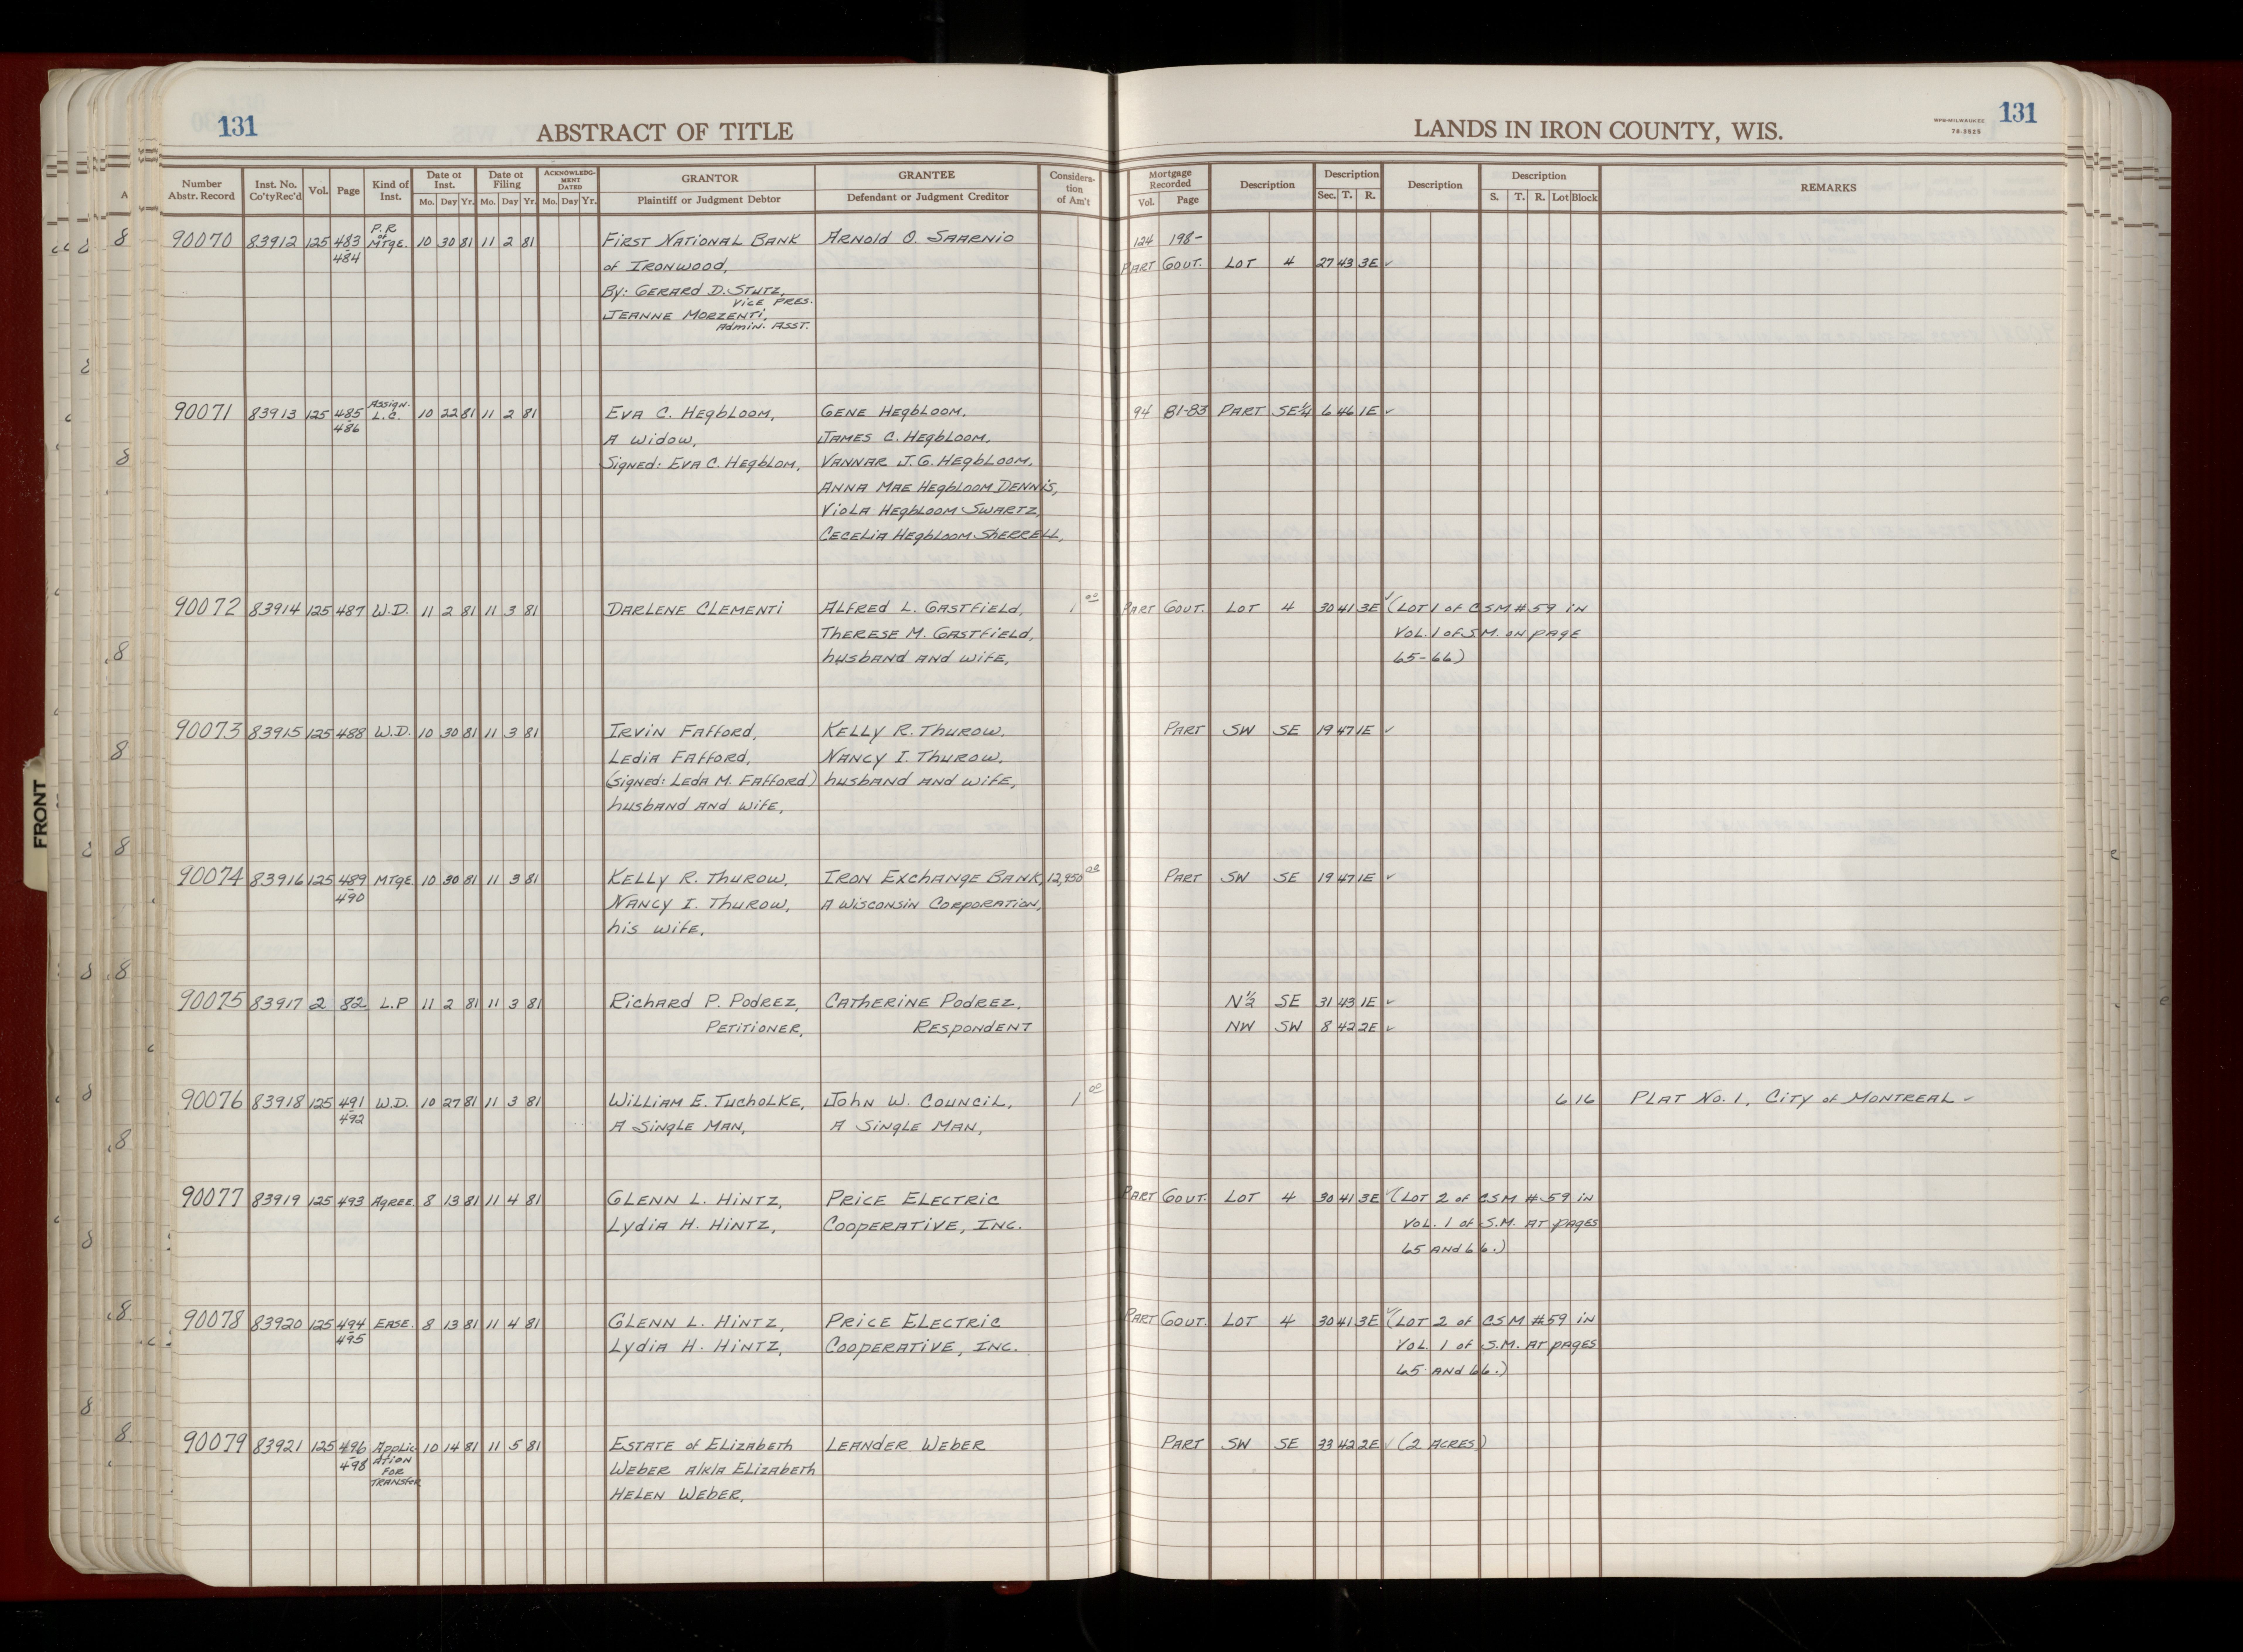 131 ABSTRACT OF TITLE LANDS IN IRON COUNTY, WIS. WPB-MILWAUKEE 78-3525 131
FRONT
Number Abstr. Record Inst. No. Co'ty Rec'd Vol. Page Kind of Inst. Date of Inst. Mo. Day Yr. Date of Filing Mo. Day Yr. ACKNOWLEDG-MENT DATED Mo. Day Yr. GRANTOR Plaintiff or Judgment Debtor GRANTEE Defendant or Judgment Creditor Considera-tion of Am't Mortgage Recorded Vol. Page Description Description Sec. T. R. Description Description S. T. R. Lot Block REMARKS
90070 83912 125 483-484 P.R of MTGE. 10 30 81 11 2 81 FIRST NATIONAL BANK ARNOLD O. SAARNIO 124 198-
of IRONWOOD, PART GOVT. LOT 4 27 43 3E ✓
By: GERARD D. STUTZ,
VICE PRES.
JEANNE MORZENTI,
Admin. ASST.
90071 83913 125 485-486 Assign. L.C. 10 22 81 11 2 81 EVA C. HEGBLOOM, GENE HEGBLOOM, 94 81-83 PART SE¼ 6 46 1E ✓
A WIDOW, JAMES C. HEGBLOOM,
Signed: EVA C. HEGBLOM, VANNAR J.G. HEGBLOOM,
ANNA MAE HEGBLOOM DENNIS,
VIOLA HEGBLOOM SWARTZ,
CECELIA HEGBLOOM SHERRELL,
90072 83914 125 487 W.D. 11 2 81 11 3 81 DARLENE CLEMENTI ALFRED L. GASTFIELD, 1 00 PART GOVT. LOT 4 30 41 3E ✓ (LOT 1 OF CSM #59 IN
THERESE M. GASTFIELD, VOL. 1 OF S.M. ON PAGE
husband AND WIFE, 65-66)
90073 83915 125 488 W.D. 10 30 81 11 3 81 IRVIN FAFFORD, KELLY R. THUROW, PART SW SE 19 47 1E ✓
LEDIA FAFFORD, NANCY I. THUROW,
(Signed: LEDA M. FAFFORD) husband AND WIFE,
husband AND WIFE,
90074 83916 125 489-490 MTGE. 10 30 81 11 3 81 KELLY R. THUROW, IRON EXCHANGE BANK, 12,950 00 PART SW SE 19 47 1E ✓
NANCY I. THUROW, A WISCONSIN CORPORATION,
his WIFE,
90075 83917 2 82 L.P 11 2 81 11 3 81 RICHARD P. PODREZ, CATHERINE PODREZ, N½ SE 31 43 1E ✓
PETITIONER, RESPONDENT NW SW 8 42 2E ✓
90076 83918 125 491-492 W.D. 10 27 81 11 3 81 WILLIAM E. TUCHOLKE, JOHN W. COUNCIL, 1 00 6 16 PLAT NO. 1, CITY of MONTREAL ✓
A SINGLE MAN, A SINGLE MAN,
90077 83919 125 493 AGREE. 8 13 81 11 4 81 GLENN L. HINTZ, PRICE ELECTRIC PART GOVT. LOT 4 30 41 3E ✓ (LOT 2 of CSM #59 IN
LYDIA H. HINTZ, COOPERATIVE, INC. VOL. 1 of S.M. AT PAGES
65 AND 66.)
90078 83920 125 494-495 EASE. 8 13 81 11 4 81 GLENN L. HINTZ, PRICE ELECTRIC PART GOVT. LOT 4 30 41 3E ✓ (LOT 2 of CSM #59 IN
LYDIA H. HINTZ, COOPERATIVE, INC. VOL. 1 of S.M. AT PAGES
65 AND 66.)
90079 83921 125 496-498 APPLICATION FOR TRANSfER 10 14 81 11 5 81 ESTATE of ELIZABETH LEANDER WEBER PART SW SE 33 42 2E ✓ (2 ACRES)
WEBER a/k/a ELIZABETH
HELEN WEBER,